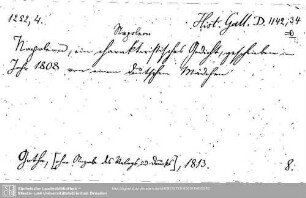 1252, 4.
Hist. Gall. D. 1142, 34
Napoleon
Napoleon, ein charakteristisches Gedicht, geschrieben im
Jahr 1808 von einem deutschen Mädchen
Gotha, [ohne Angabe des Verlags od. Druckers], 1813.
8.
Sächsische Landesbibliothek -
Staats- und Universitätsbibliothek Dresden